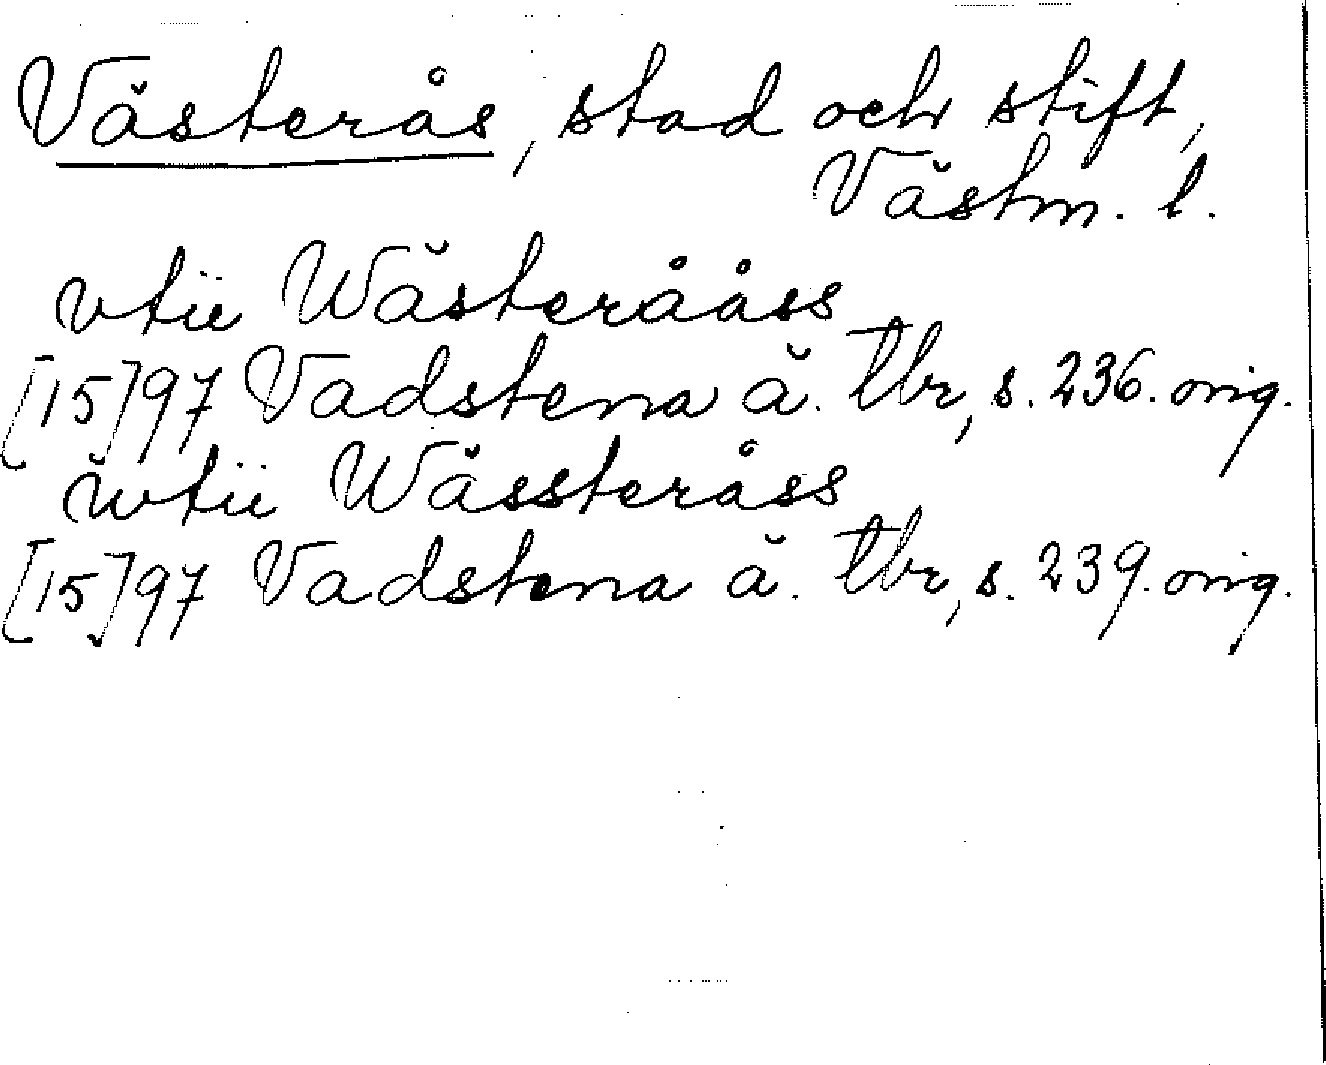 Västerås, stad och stift,
Västm. l.
vtii Wästerååss
[15]97 Vadstena ä. tbr, s. 236. orig.
wtii Wässteråss
[15]97 Vadstena ä. tbr, s. 239. orig.